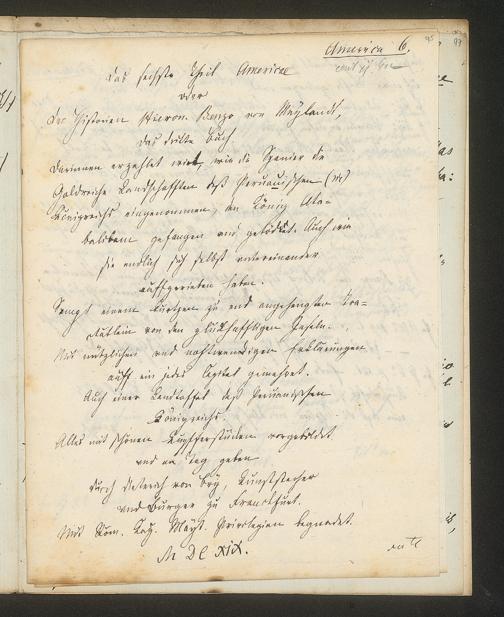 America 6.
95
97
Das sechste Theil Americae
oder
Der Historien Hieron. Benzo von Meylandt,
Das dritte Buch
Darinnen erzehlet wirt, wie die Spanier die
Goldreiche Landschafften deß Peruanischen (sic)
Königreichs eingenommen, den König Ata-
balibam gefangen und getödtet. Auch wie
sie endlich sich selbst untereinander
auffgerieben haben.
Sampt einem kurtzen zu end angehengten Tra-
ctätlein von den glückhafftigen Inseln.
Mit nützlichen und nothwendigen Erklärungen
auff ein jedes Capitel gemehret.
Auch einer Landtaffel deß Peruanischen
Königreichs
Alles mit schönen Kupfferstücken vorgebildet
und an Tag geben
durch Dieterich von Bry, Kunststecher
und Burger zu Franckfurt.
Mit Röm. Kay. Mayt. Privilegien begnadet.
M DC XIX.